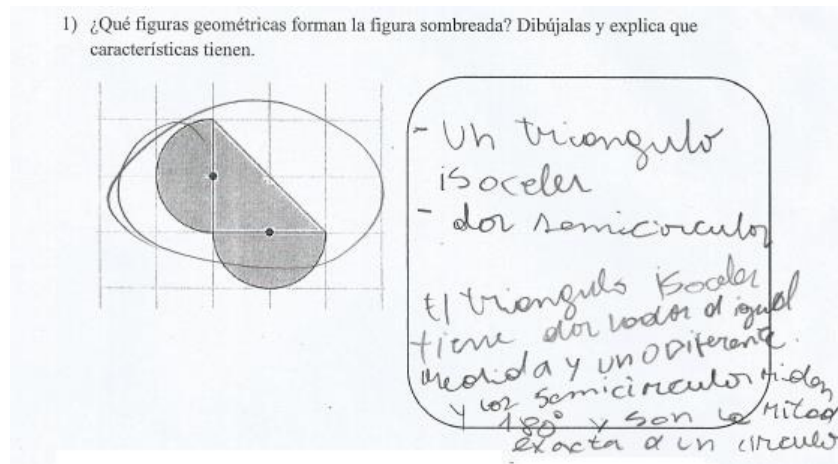 1) ¿Qué figuras geométricas forman la figura sombreada? Dibújalas y explica que
características tienen.
- Un triangulo
isoceles
- dos semicirculos
El triangulo isoceles
tiene dos lados d igual
medida y uno Diferente.
y los semicirculos miden
180° y son la mitad
exacta d un circulo